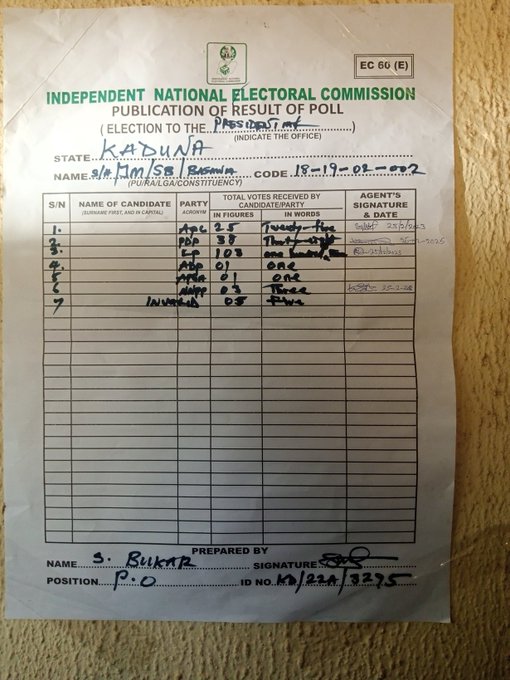 EC 60 (E)
INDEPENDENT NATIONAL ELECTORAL COMMISSION
PUBLICATION OF RESULT OF POLL
( ELECTION TO THE PRESIDENTIAL )
(INDICATE THE OFFICE)
STATE KADUNA
NAME S/A/JM/SB/BASAWA CODE 18-19-02-002
(PU/RA/LGA/CONSTITUENCY)
S/N NAME OF CANDIDATE (SURNAME FIRST, AND IN CAPITAL) PARTY ACRONYM TOTAL VOTES RECEIVED BY CANDIDATE/PARTY IN FIGURES IN WORDS AGENT'S SIGNATURE & DATE
1. APC 25 Twenty-five 25/2/2023
2. PDP 38 Thirty-eight
3. LP 103 one hundred
4. ADP 01 one
5 01 one
6 NNPP 03 Three 25-2-23
7 INVALID 05 Five
PREPARED BY
NAME S. BUKAR SIGNATURE
POSITION P.O ID NO. KD/22A/3295